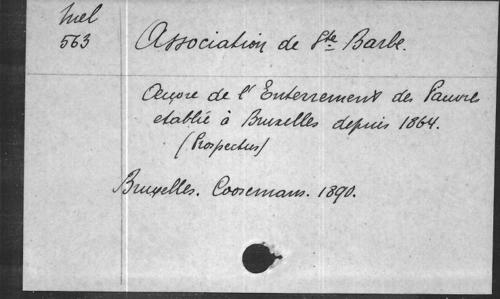 Mel
563
Association de Ste Barbe.
Œuvre de l'Enterrement des Pauvres
etablie à Bruxelles depuis 1864.
(Prospectus)
Bruxelles. Coosemans. 1890.